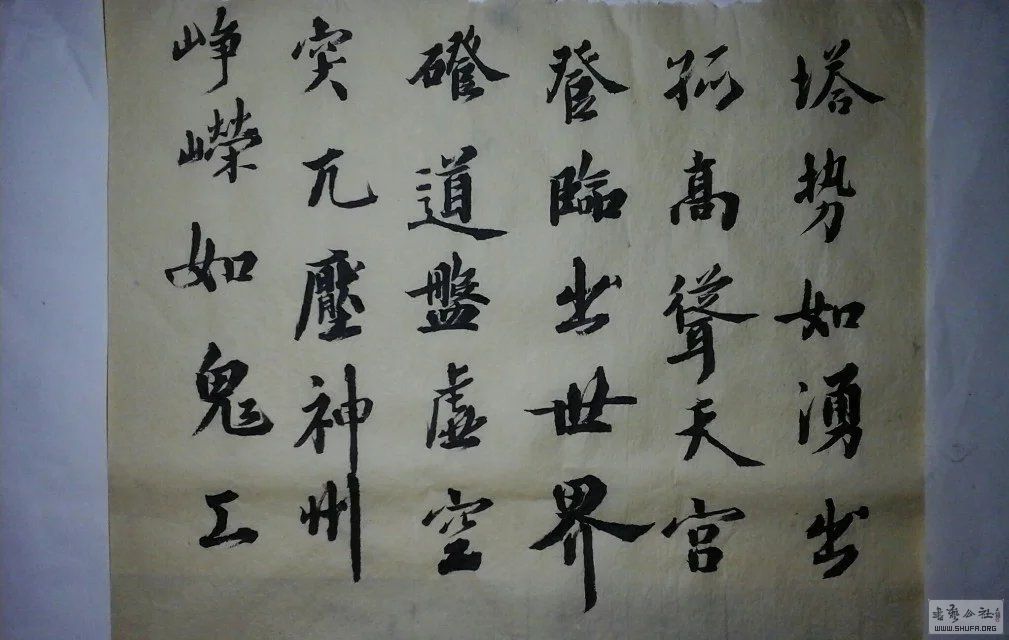 塔势如湧出
孤高聳天宫
登臨出世界
磴道盤虚空
突兀壓神州
峥嶸如鬼工
書藝公社
WWW.SHUFA.ORG